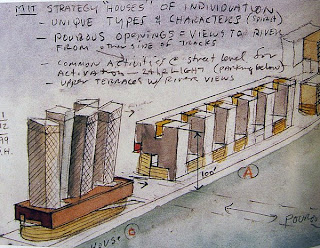 MIT STRATEGY 'HOUSES' OF INDIVIDUATION
- UNIQUE TYPES & CHARACTERS (SPIRIT)
- POUROUS OPENINGS & VIEWS TO RIVER
FROM OTHER SIDE OF TRACKS
- COMMON ACTIVITIES @ STREET LEVEL FOR
ACTIVATION — 24 HR LIGHT (PARKING BELOW)
- UPPER TERRACES W/ RIVER VIEWS
99
S.H.
100'
A
HOUSE C
POUROUS